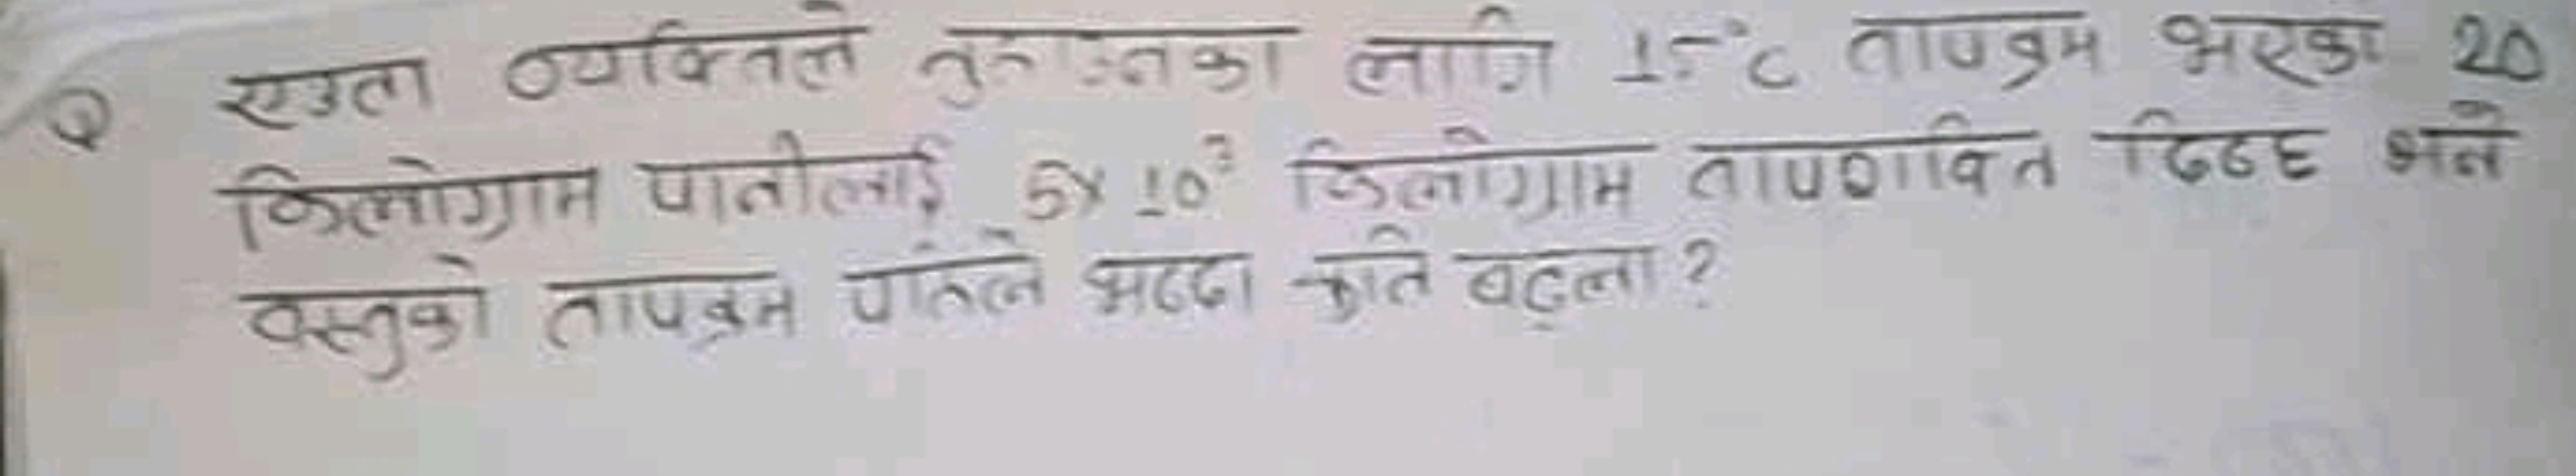 Q एउटा व्यक्तिले का लागि 15°C तापक्रम भएको 20
किलोग्राम पानीलाई 5x10³ किलोग्राम तापशक्ति दिदछ भने
वस्तुको तापक्रम पहिले भन्दा कति बढ्ला?